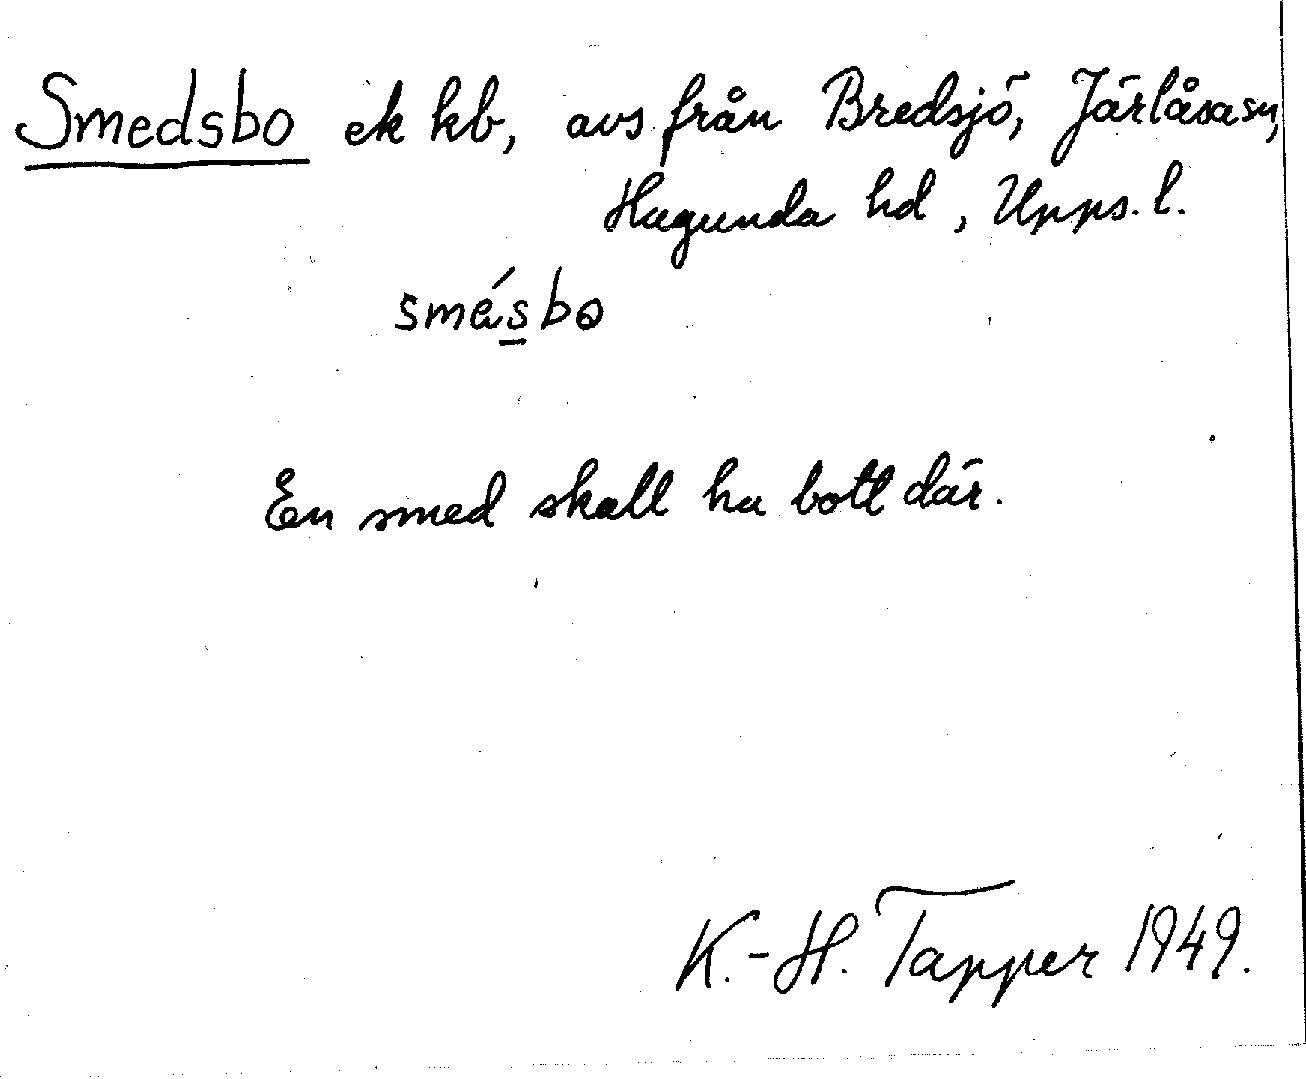 Smedsbo ek kb, avs från Bredsjö, Järlåsa sn,
Hagunda hd, Upps. l.
smésbo
En smed skall ha bott där.
K.-H. Tapper 1949.